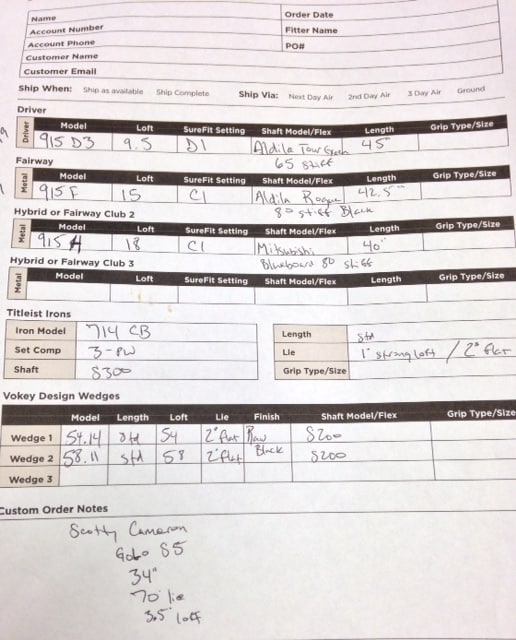 Name
Order Date
Account Number
Fitter Name
Account Phone
PO#
Customer Name
Customer Email
Ship When: Ship as available Ship Complete Ship Via: Next Day Air 2nd Day Air 3 Day Air Ground
Driver
Driver Model Loft SureFit Setting Shaft Model/Flex Length Grip Type/Size
915 D3 9.5 D1 Aldila Tour Green 45"
65 stiff
Fairway
Metal Model Loft SureFit Setting Shaft Model/Flex Length Grip Type/Size
915 F 15 C1 Aldila Rogue 42.5"
80 stiff Black
Hybrid or Fairway Club 2
Metal Model Loft SureFit Setting Shaft Model/Flex Length Grip Type/Size
915 H 18 C1 Mitsubishi 40"
Blueboard 80 stiff
Hybrid or Fairway Club 3
Metal Model Loft SureFit Setting Shaft Model/Flex Length Grip Type/Size
Titleist Irons
Iron Model 714 CB Length std
Set Comp 3-PW Lie 1° strong loft / 2° flat
Shaft S300 Grip Type/Size
Vokey Design Wedges
Model Length Loft Lie Finish Shaft Model/Flex Grip Type/Size
Wedge 1 54.14 std 54 2° flat Raw S200
Wedge 2 58.11 std 58 2° flat Black S200
Wedge 3
Custom Order Notes
Scotty Cameron
GoLo S5
34"
70° lie
3.5° loft